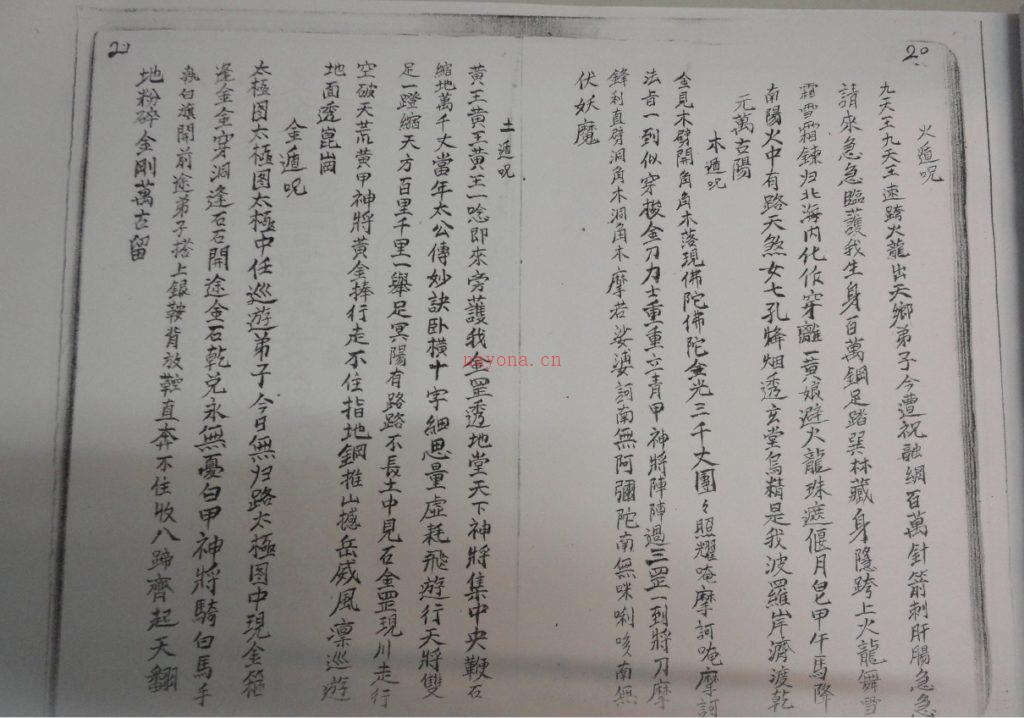 20
火遁呪
九天王九天王速跨火龍出天鄉弟子今遭祝融網百萬針箭刺肝腸急急
請來急急臨護我生身百萬鋼足踏巽林藏身隱跨上火龍舞雪
霜雪霜鍊归北海内化作穿離一黄娘避火龍珠遮偃月皂甲午馬降
南陽火中有路天煞女七孔烽烟透玄堂烏精是我波羅岸濟渡乾
元萬古陽
木遁呪
全見木劈開角角木落現佛陀佛陀全光三千大團々照耀唵摩訶唵摩訶
法旨一到似穿梭金刀力士重重立青甲神將陣陣過三罡一到將刀摩
鋒利直劈洞角木洞角木摩若娑婆訶南無阿彌陀南無咪唎哆南無
伏妖魔
土遁呪
黄王黄王黄王一唸即來旁護我金罡透地堂天下神將集中央鞭石
縮地萬千丈當年太公傳妙訣卧橫十字細思量虛耗飛遊行天將雙
足一蹬縮天方百里千里一舉足冥陽有路路不長土中見石金罡現川走行
空破天荒黄甲神將黄金捧行走不住指地鋼推山撼岳威風凛巡遊
地面透崑崗
金遁呪
太極图太極图太極中任巡遊弟子今日無归路太極图中現金箍
逢金金穿洞逢石石開途金石乾兑永無憂白甲神將騎白馬手
執白旗開前途弟子搭上銀鞍背放鞚直奔不住收八蹄齊起天翻
地粉碎金剛萬古留
21
nayona.cn